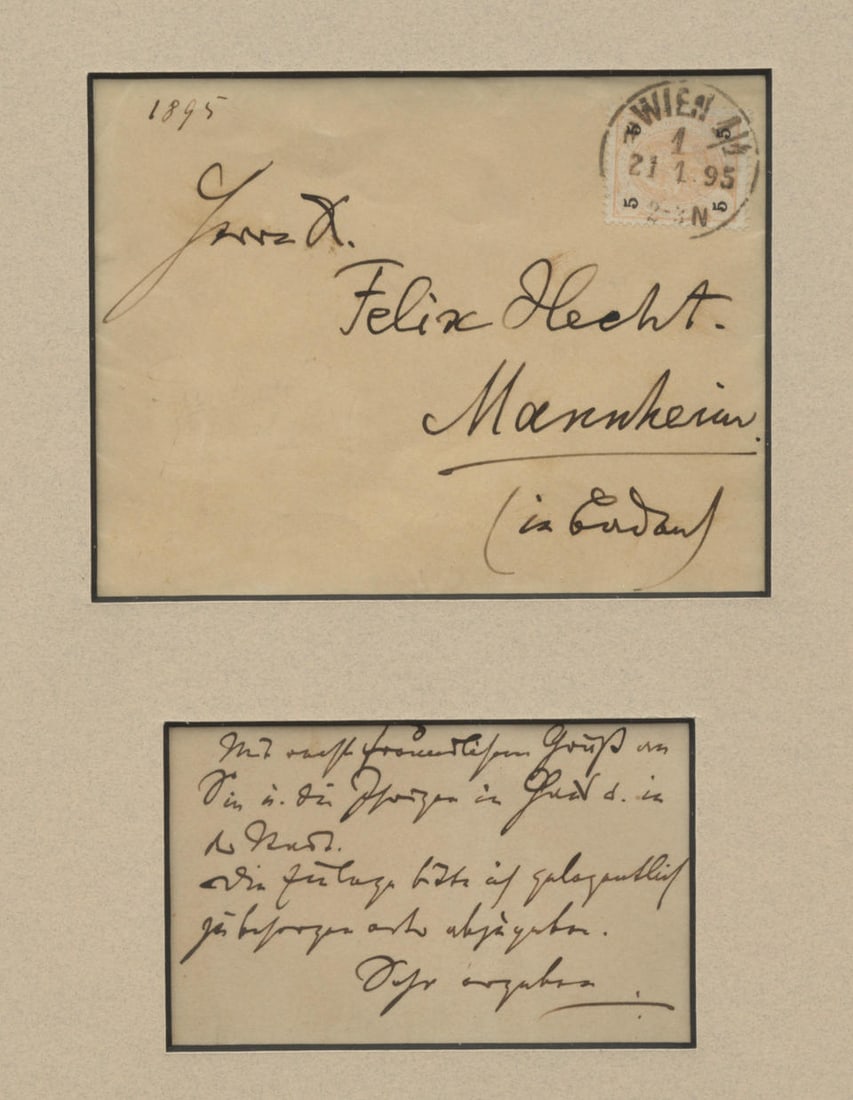 1895
WIEN 1/1
1
21 1 95
2-3N
5 5
5 5
Herrn D.
Felix Hecht.
Mannheim.
(in Baden)
Mit recht freundlichem Gruß an
Sie u. die Ihrigen in Haus u. in
der Stadt.
Die Einlage bitte ich gelegentlich
zu besorgen oder abzugeben.
Sehr ergeben